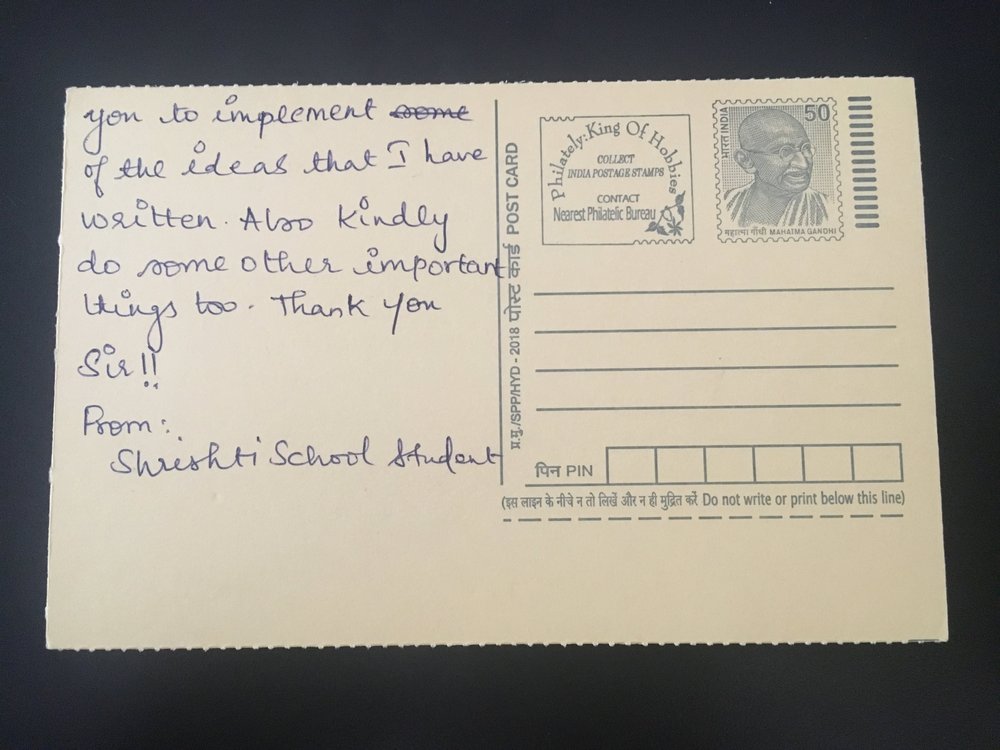 you to implement some
of the ideas that I have
written. Also kindly
do some other important
things too. Thank you
Sir!!
From:
Shrishti School Student
प्र.मु./SPP/HYD - 2018 पोस्ट कार्ड POST CARD
Philately: King Of Hobbies
COLLECT
INDIA POSTAGE STAMPS
CONTACT
Nearest Philatelic Bureau
भारत INDIA
50
महात्मा गाँधी MAHATMA GANDHI
पिन PIN
(इस लाइन के नीचे न तो लिखें और न ही मुद्रित करें Do not write or print below this line)